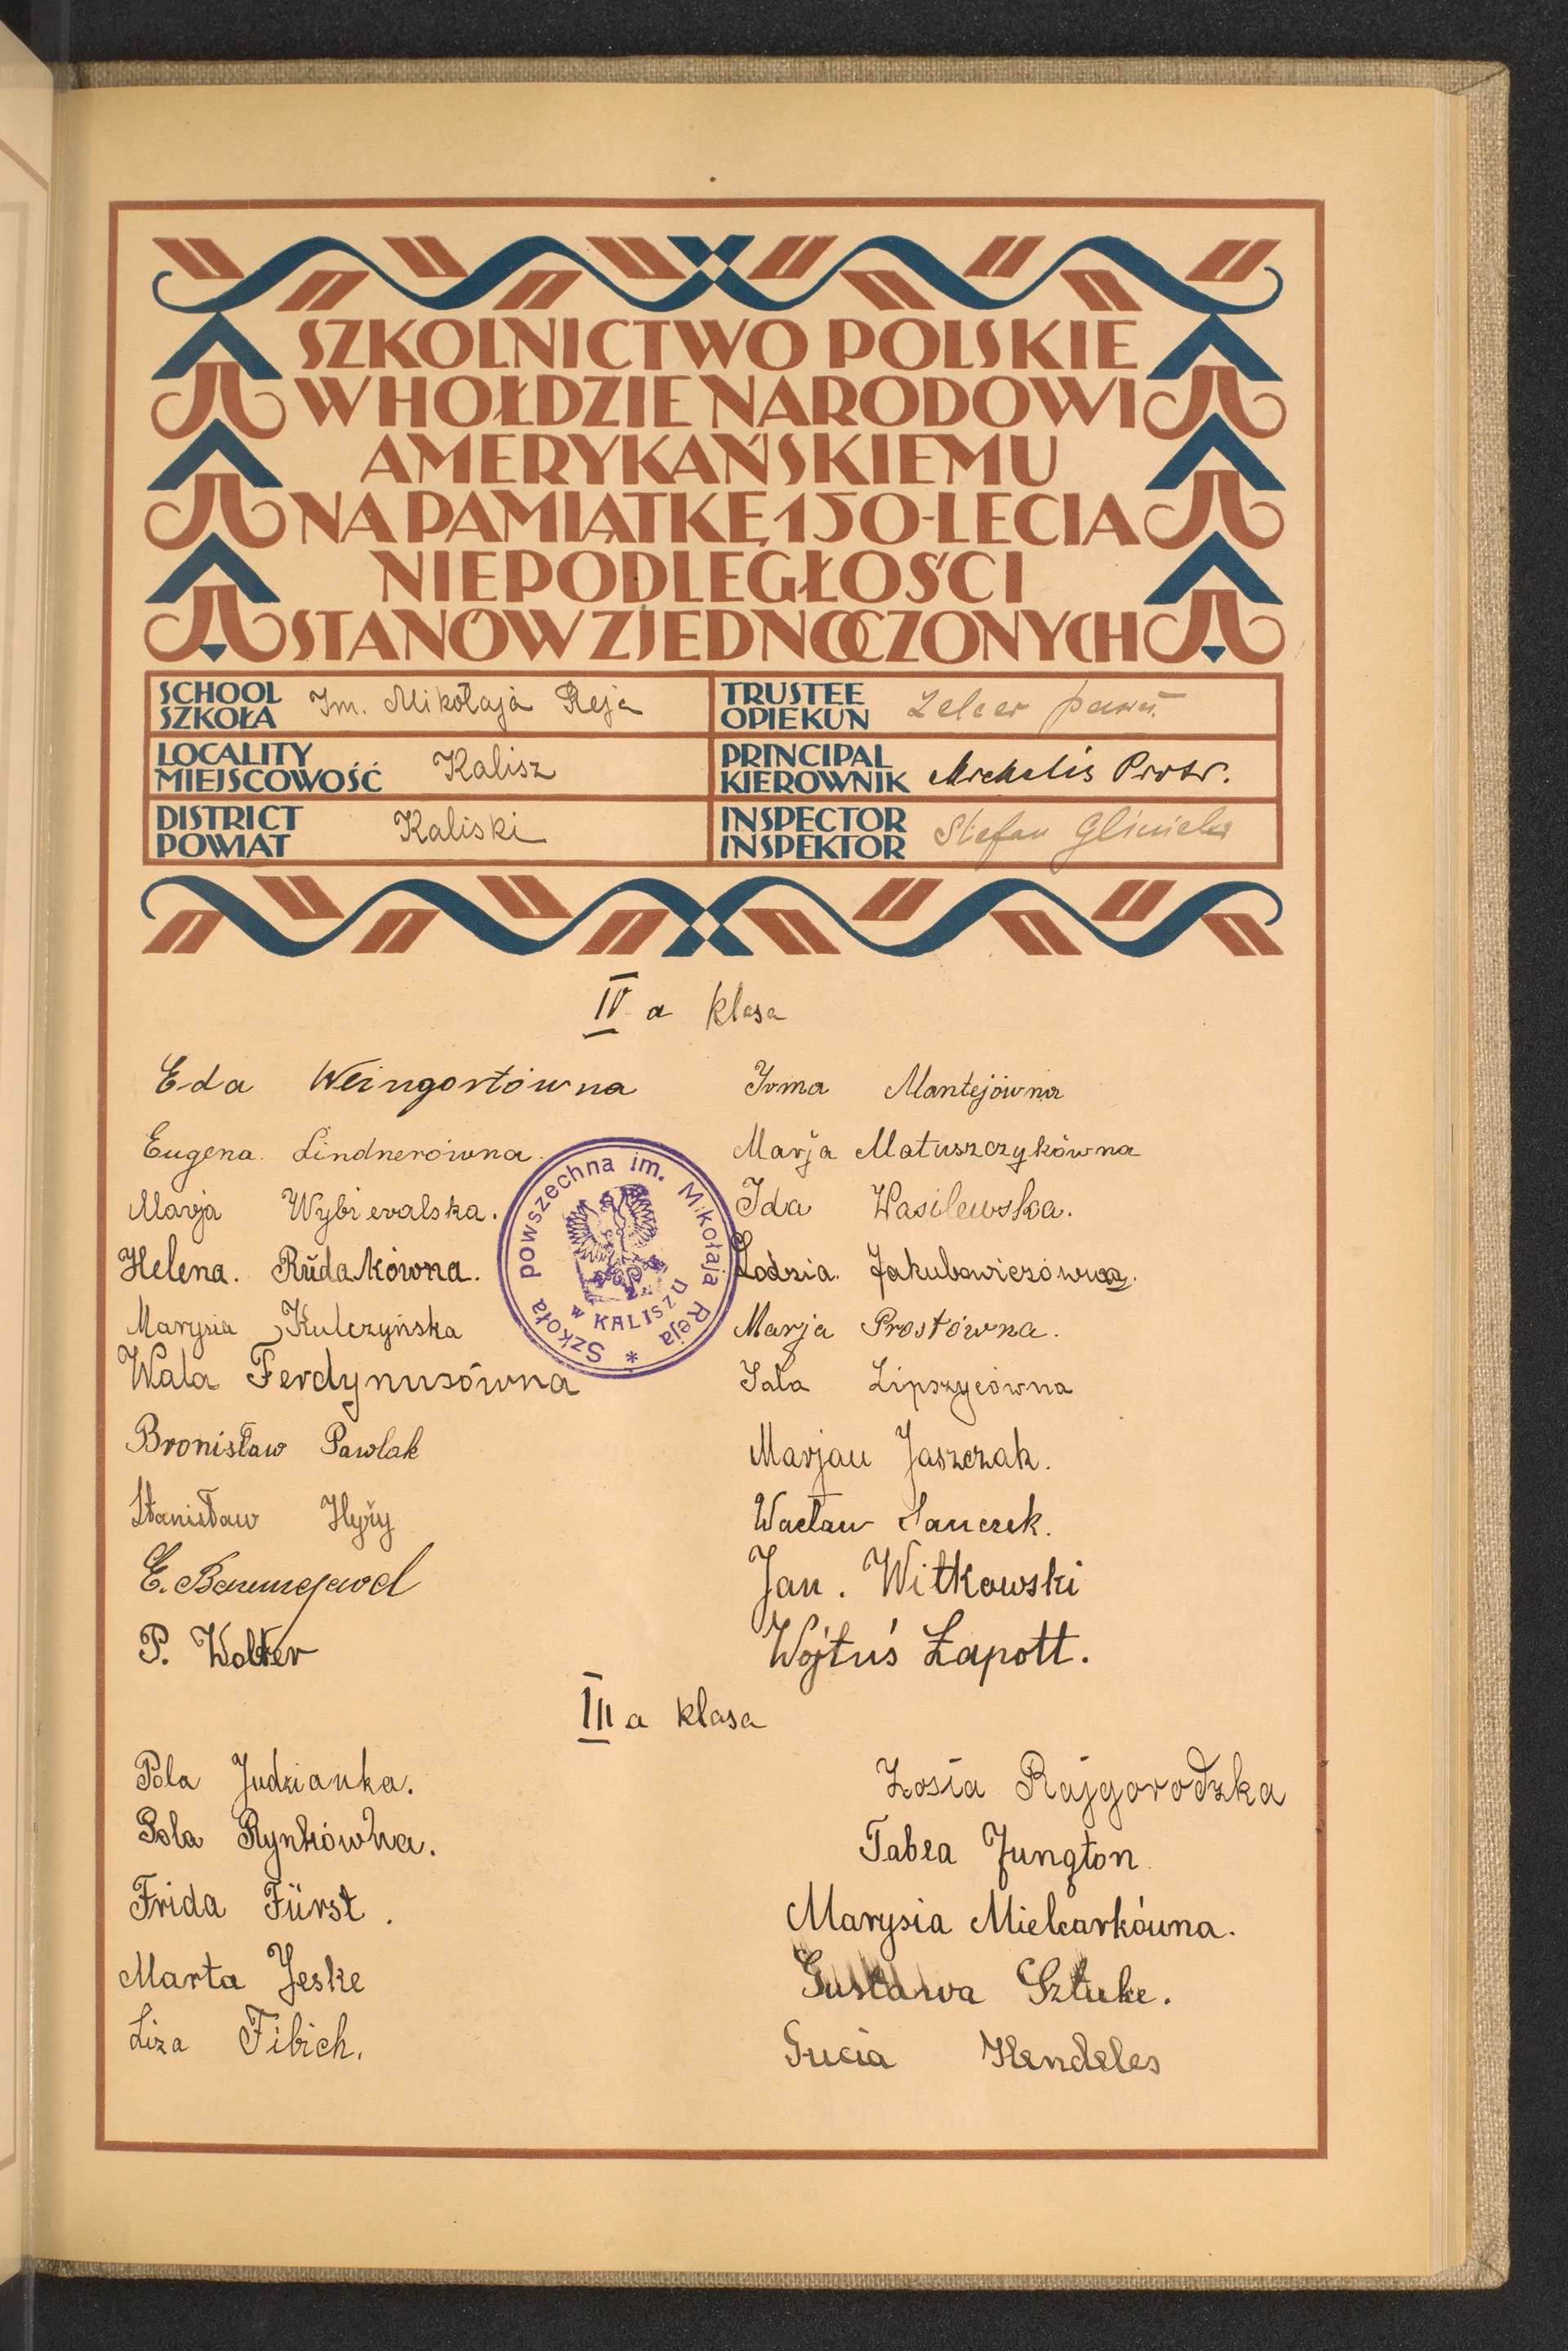 SZKOLNICTWO POLSKIE
W HOŁDZIE NARODOWI
AMERYKAŃSKIEMU
NA PAMIĄTKĘ 150-LECIA
NIEPODLEGŁOŚCI
STANÓW ZJEDNOCZONYCH
SCHOOL
SZKOŁA
Im. Mikołaja Reja
TRUSTEE
OPIEKUN
LOCALITY
MIEJSCOWOŚĆ
Kalisz
PRINCIPAL
KIEROWNIK
Michelis
DISTRICT
POWIAT
Kaliski
INSPECTOR
INSPEKTOR
Stefan
IV a klasa
Eda Weingortówna
Eugena. Lindnerówna.
Marja
Helena. Rudakówna.
Marysia Kulczyńska
Wala Ferdynusówna
Bronisław Pawlak
Stanisław Hyży
E.
P. Wolter
Szkoła powszechna im. Mikołaja Reja
w KALISZU
*
Irma Mantejówna
Marja Matuszczykówna
Ida Wasilewska.
Lodzia. Jakubowiczówna.
Marja Prostówna.
Sala Lipszycówna
Marjan Jaszczak.
Wacław Janczek.
Jan. Witkowski
Wojtuś Łapott.
III a klasa
Pola Judzianka.
Pola Rynkówna.
Frida Fürst.
Marta Jeske
Liza Fibich.
Zosia Rajgorodzka
Tabea Jungton
Marysia Mielcarkówna.
Gustawa Sztuke.
Gucia Hendeles